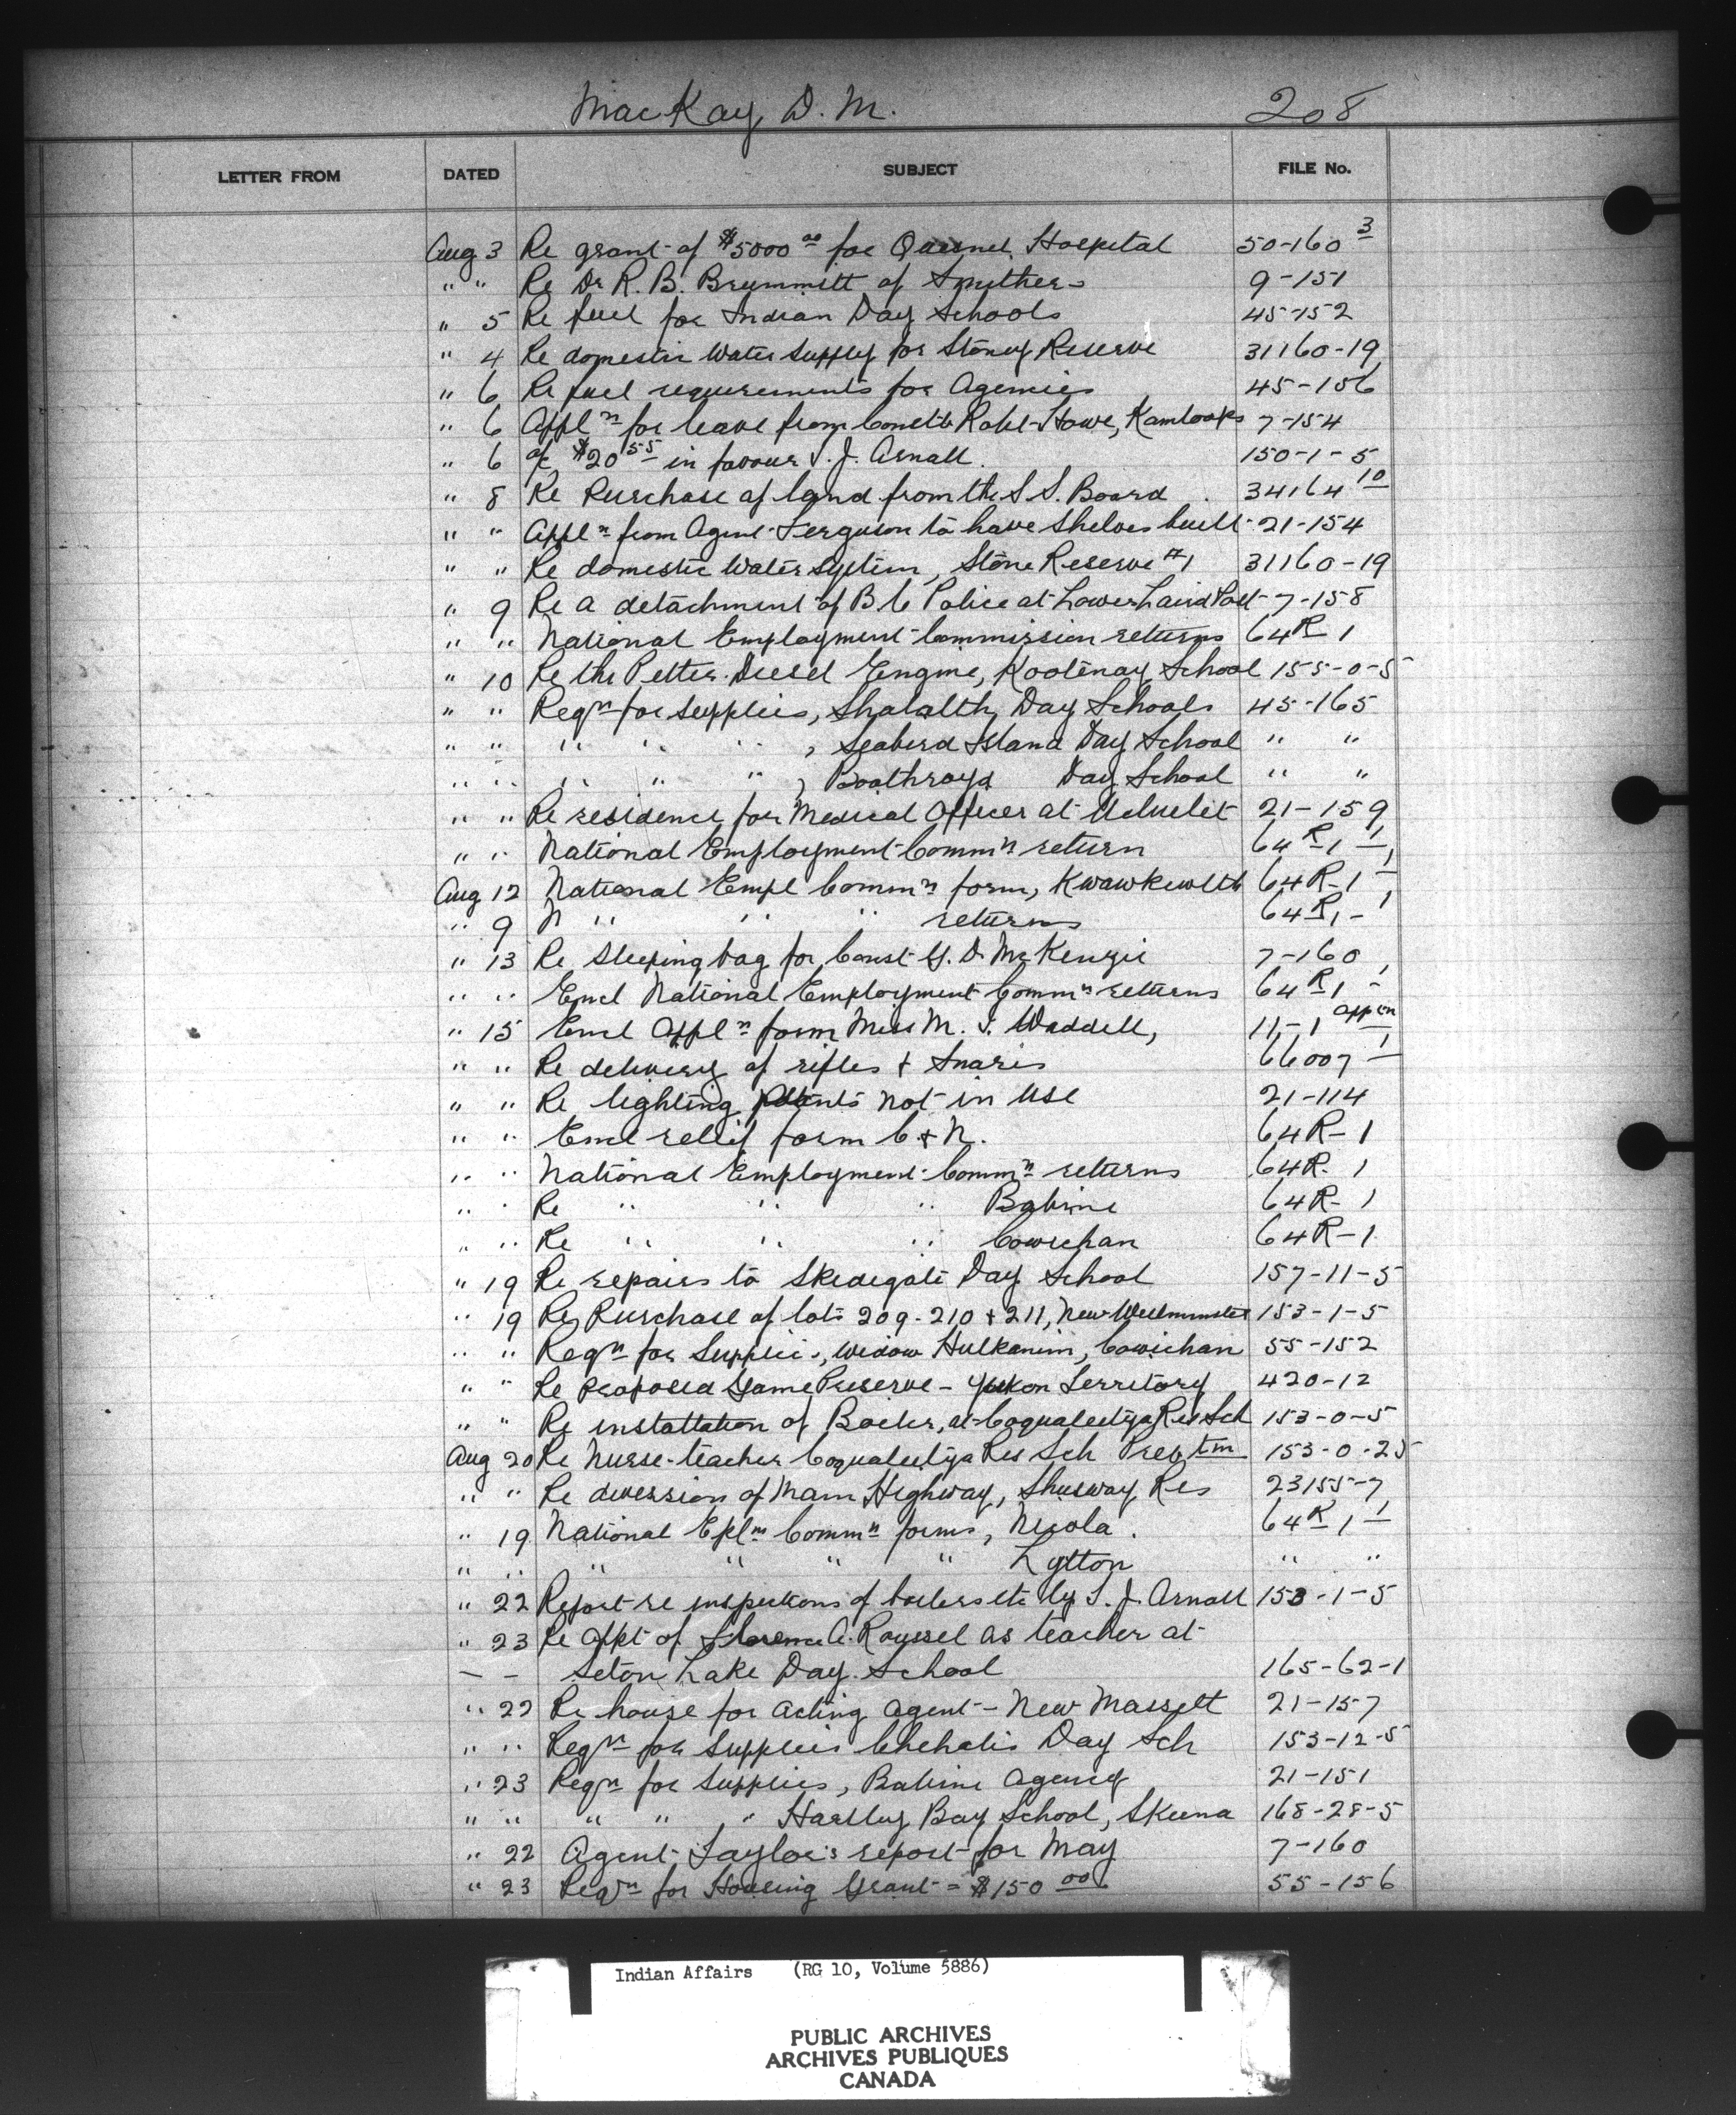 MacKay, D. M. 208
LETTER FROM DATED SUBJECT FILE No.
Aug 3 Re grant of $5000 00 for Quesnel Hospital 50-160 3
" " Re Dr R. B. Brummitt of Smithers 9-151
" 5 Re fuel for Indian Day Schools 45-152
" 4 Re domestic Water Supply for Stoney Reserve 31160-19
" 6 Re fuel requirements for Agencies 45-156
" 6 Appl n for leave from Howe, Kamloops 7-154
" 6 a/c $20 55 in favour T. J. Arnall. 150-1-5
" 8 Re Purchase of land from the S. S. Board. 34164 10
" " Appl n from Agent Ferguson to have Shelves built 21-154
" " Re domestic Water System, Stone Reserve #1 31160-19
" 9 Re a detachment of B C Police at Lower Laird Post 7-158
" " National Employment Commission returns 64 R 1
" 10 Re the Petter Diesel Engine, Kootenay School 155-0-5
" " Reqn for supplies, Shalalth Day Schools 45-165
" " " " " , Seabird Island Day School " "
" " " " " , Boothroyd Day School " "
" " Re residence for Medical Officer at Ucluelet 21-159
" " National Employment Comm n return 64 R 1 1
Aug 12 National Empl Comm n form, Kwawkewlth 64 R-1 1
" 9 N " " " returns 64 R 1 - 1
" 13 Re Sleeping bag for Const G. D McKenzie 7-160
" " Encl National Employment Comm n returns 64 R 1 1
" 15 Encl Appl n form Miss M. I. Waddell, 11-1 appln
" " Re delivery of rifles & Snares 66007 1
" " Re lighting plants not in use 21-114
" " Encl relief form C & N. 64R-1
" " National Employment Comm n returns 64R-1
" " Re " " " Babine 64R-1
" " Re " " " Cowichan 64R-1
" 19 Re repairs to Skidegate Day School 157-11-5
" 19 Re Purchase of lots 209-210 & 211, New Westminster 153-1-5
" " Reqn for Supplies, Widow Hulkanim, Cowichan 55-152
" " Re Proposed Game Preserve - Yukon Territory 420-12
" " Re installation of Boiler, at Coqualeetza Res Sch 153-0-5
Aug 20 Re Nurse-teacher Coqualeetza Res Sch Prev tm 153-0-25
" " Re diversion of Main Highway, Shuswap Res 23155-7
" 19 National Epl m Comm n forms, Nicola. 64 R 1 1
" " " " " " Lytton " "
" 22 Report re inspections of boilers etc by T. J. Arnall 153-1-5
" 23 Re appt of Florence A. Roussel as teacher at
- - Seton Lake Day School 165-62-1
" 22 Re house for acting agent - New Massett 21-157
" " Reqn for Supplies Chehalis Day Sch 153-12-5
" 23 Reqn for Supplies, Babine Agency 21-151
" " " " " Hartley Bay School, Skeena 168-28-5
" 22 Agent Taylor's report for May 7-160
" 23 Reqn for Housing Grant = $150 00 55-156
Indian Affairs (RG 10, Volume 5886)
PUBLIC ARCHIVES
ARCHIVES PUBLIQUES
CANADA